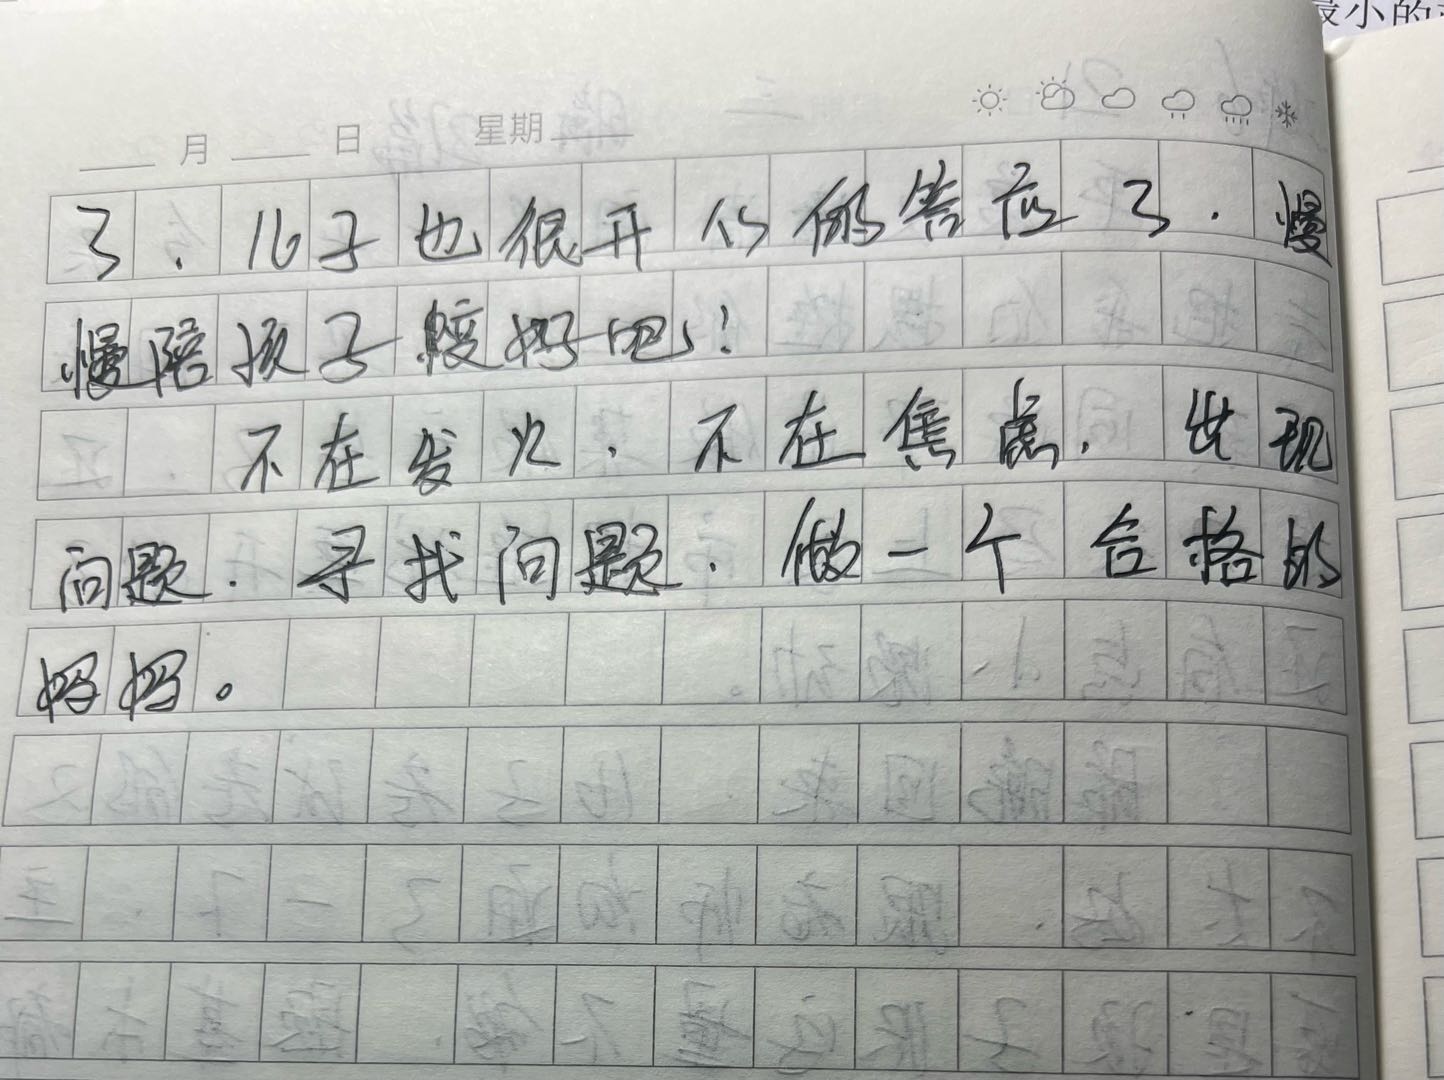 最小的
月 日 星期
了.儿子也很开心的答应了.慢
慢陪孩子变好吧!
不在发火.不在焦虑.出现
问题.寻找问题.做一个合格的
妈妈。